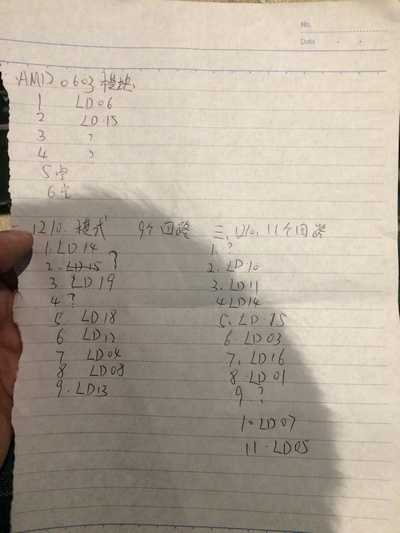 No.
Date
AMD 0603 模块
1 LD06
2 LD15
3 ?
4 ?
5 空
6 空
1210. 模式 9个回路
1. LD14
2. LD15 ?
3 LD19
4 ?
5 LD18
6 LD12
7 LD04
8 LD08
9. LD13
三. 1210. 11个回路
1. ?
2. LD10
3. LD11
4 LD14
5. LD 15
6. LD03
7. LD16
8. LD01
9 ?
10. LD07
11. LD05